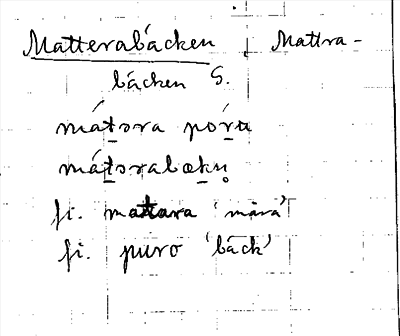 Matterabäcken, Mattra-
bäcken S.
mát̲ora pór̲u
mát̲orabæk̲n̥
fi. mattara 'måra'
fi. puro 'bäck'